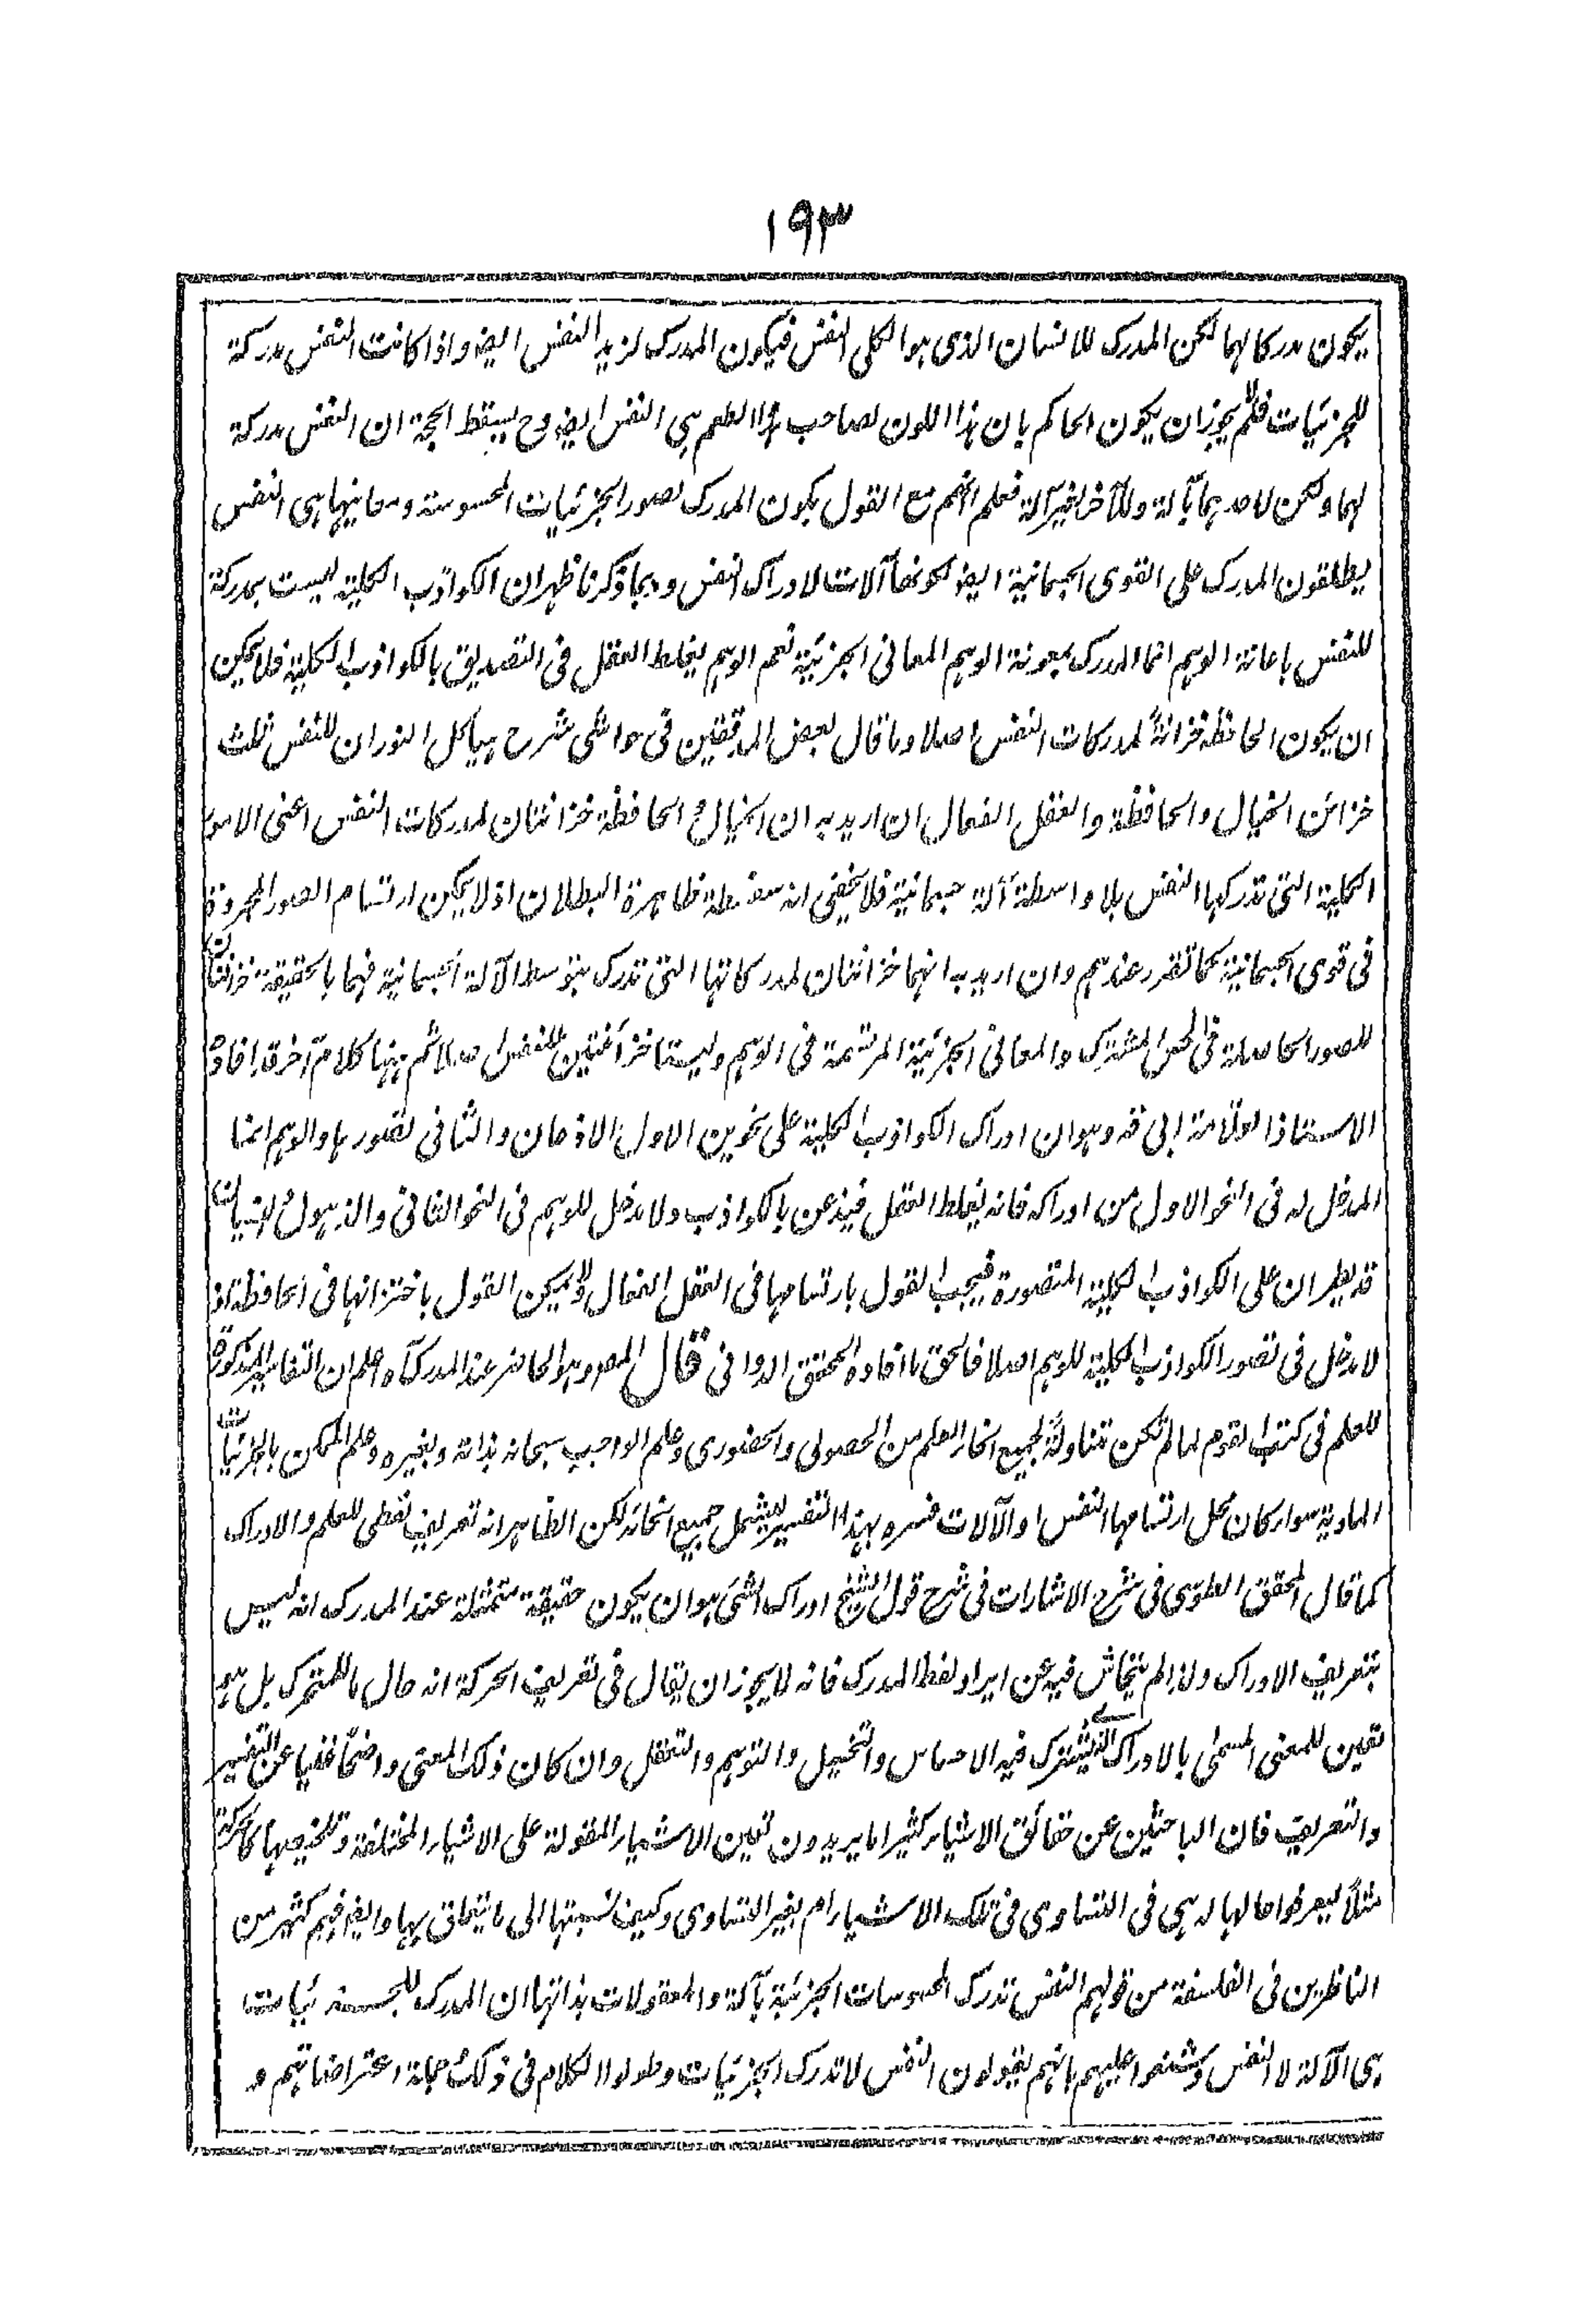 ١٩٣
يكون مدركا لهما لكن المدرك للانسان الذى هو الكلى النفس فيكون المدرك لزيد النفس ايضا واذا كانت النفس مدركة
للجزئيات فلم لا يجوز ان يكون الحاكم بان هذا اللون لصاحب هذا الطعم هى النفس ايضا وح يسقط الحجة ان النفس مدركة
لهما ولكن لاحدهما بآلة وللآخر لغير آلة فعلم انهم مع القول بكون المدرك لصور الجزئيات المحسوسة ومعانيها هى النفس
يطلقون المدرك على القوى الجسمانية ايضا لكونها آلات لادراك النفس وبما ذكرنا ظهر ان الكواذب الكلية ليست بمدركة
للنفس باعانة الوهم انما المدرك بمعونة الوهم المعانى الجزئية نعم الوهم يغلط العقل فى التصديق بالكواذب الكلية فلا يمكن
ان يكون الحافظة خزانةً لمدركات النفس اصلا وما قال بعض المدققين فى حواشى شرح هياكل النور ان للنفس ثلث
خزائن الخيال والحافظة والعقل الفعال ان اريد به ان الخيال و الحافظة خزانتان لمدركات النفس اعنى الامور
الكلية التى تدركها النفس بلا واسطة آلة جسمانية فلا يخفى انه سفسطة ظاهرة البطلان اذ لا يمكن ارتسام الصور المجردة
فى قوى الجسمانية كما تقرر عندهم وان اريد به انهما خزانتان لمدركاتها التى تدرك بتوسط الآلة الجسمانية فهما بالحقيقة خزانتان
للصور الحاصلة فى الحس المشترك والمعانى الجزئية المرتسمة فى الوهم وليستا خزانتين للنفس اصلا ثم ههنا كلام آخر قد افاده
الاستاذ العلامة ابى قد وهو ان ادراك الكواذب الكلية على نحوين الاول الاذعان والثانى تصورها والوهم انما
المدخل له فى النحو الاول من ادراكه فانه يغلط العقل فيذعن بالكواذب ولا مدخل للوهم فى النحو الثانى والذهول والنسيان
قد يطرءان على الكواذب الكلية المتصورة فيجب القول بارتسامها فى العقل الفعال ولا يمكن القول باختزانها فى الحافظة اذ
لا مدخل فى تصور الكواذب الكلية للوهم اصلا فالحق ما افاده المحقق الدوانى قال المصـ وهو الحاضر عند المدرك آه اعلم ان التفاسير المذكورة
للعلم فى كتب القوم لما لم تكن متناولةً لجميع انحاء العلم من الحصولى والحضورى وعلم الواجب سبحانه بذاته وبغيره وعلم الممكن بالجزئيات
المادية سواء كان محل ارتسامها النفس او الآلات فسره بهذا التفسير ليشمل جميع انحائه لكن الظاهر انه تعريف لفظى للعلم والادراك
كما قال المحقق الطوسى فى شرح الاشارات فى شرح قول الشيخ ادراك الشئ هو ان يكون حقيقة متمثلة عند المدرك انه ليس
بتعريف الادراك ولذا لم يتحاش فيه عن ايراد لفظ المدرك فانه لا يجوز ان يقال فى تعريف الحركة انه حال ما للمتحرك بل هو
تعين للمعنى المسمى بالادراك الذى يشترك فيه الاحساس والتخيل والتوهم والتعقل وان كان ذلك المعنى واضحاً غنيا عن التفسير
والتعريف فان الباحثين عن حقائق الاشياء كثيرا ما يريدون تعين الاشياء المقولة على الاشياء المختلفة وتلخيصها كالحركة
مثلاً ليعرفوا حالها اهى فى التساوى فى تلك الاشياء ام بغير التساوى وكيف نسبتها الى ما يتعلق بها وايضا فهم كثير من
الناظرين فى الفلسفة من قولهم النفس تدرك المحسوسات الجزئية بآلة والمعقولات بذاتها ان المدرك للجزئيات
هى الآلة لا النفس وشنعوا عليهم بانهم يقولون النفس لا تدرك الجزئيات وطولوا الكلام فى ذلك جملة اعتراضاتهم و